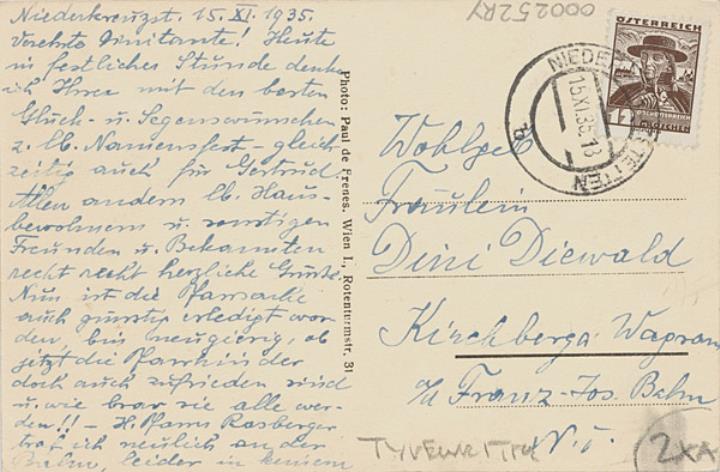 Niederkreuzst. 15.XI.1935.
Verehrte Dinitante! Heute
in festlicher Stunde denke
ich Ihrer mit den besten
Glück- u. Segenswünschen
z. lb. Namensfest - gleich-
zeitig auch für Gertrud.
Allen andern lb. Haus-
bewohnern u. sonstigen
Freunden u. Bekannten
recht recht herzliche Grüße.
Nun ist die Pfarrsache
auch günstig erledigt wor-
den, bin neugierig, ob
jetzt die Pfarrkinder
doch auch zufrieden sind
u. wie brav sie alle wer-
den!! - H. Pfarrer Rasberger
traf ich neulich an der
Bahn, leider in keinem
Photo: Paul de Frenes. Wien I., Rotenturmstr. 31
000252RY
ÖSTERREICH
12
15.XI.35.18
b
Wohlgeb
Fräulein
Dini Diewald
Kirchberg a. Wagram
a/ Franz-Jos. Bahn
N.Ö.
2XA